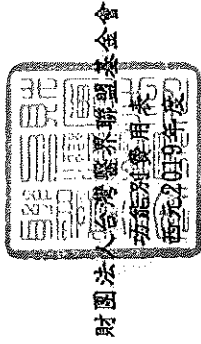 財團法人台灣醫界聯盟基金會
功能別費用表
西元2019年度